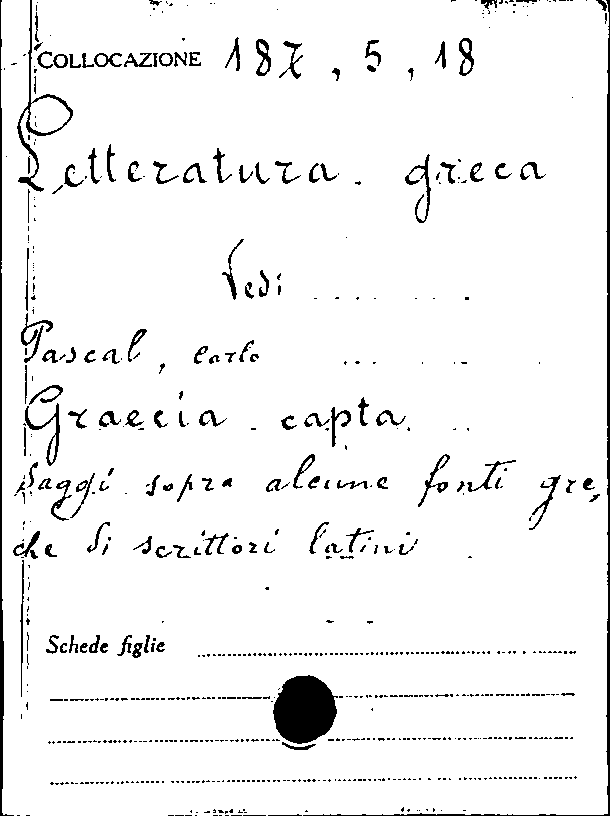 COLLOCAZIONE 187, 5, 18
Letteratura greca
Vedi
Pascal, Carlo
Graecia capta
Saggi sopra alcune fonti gre,
che di scrittori latini
Schede figlie